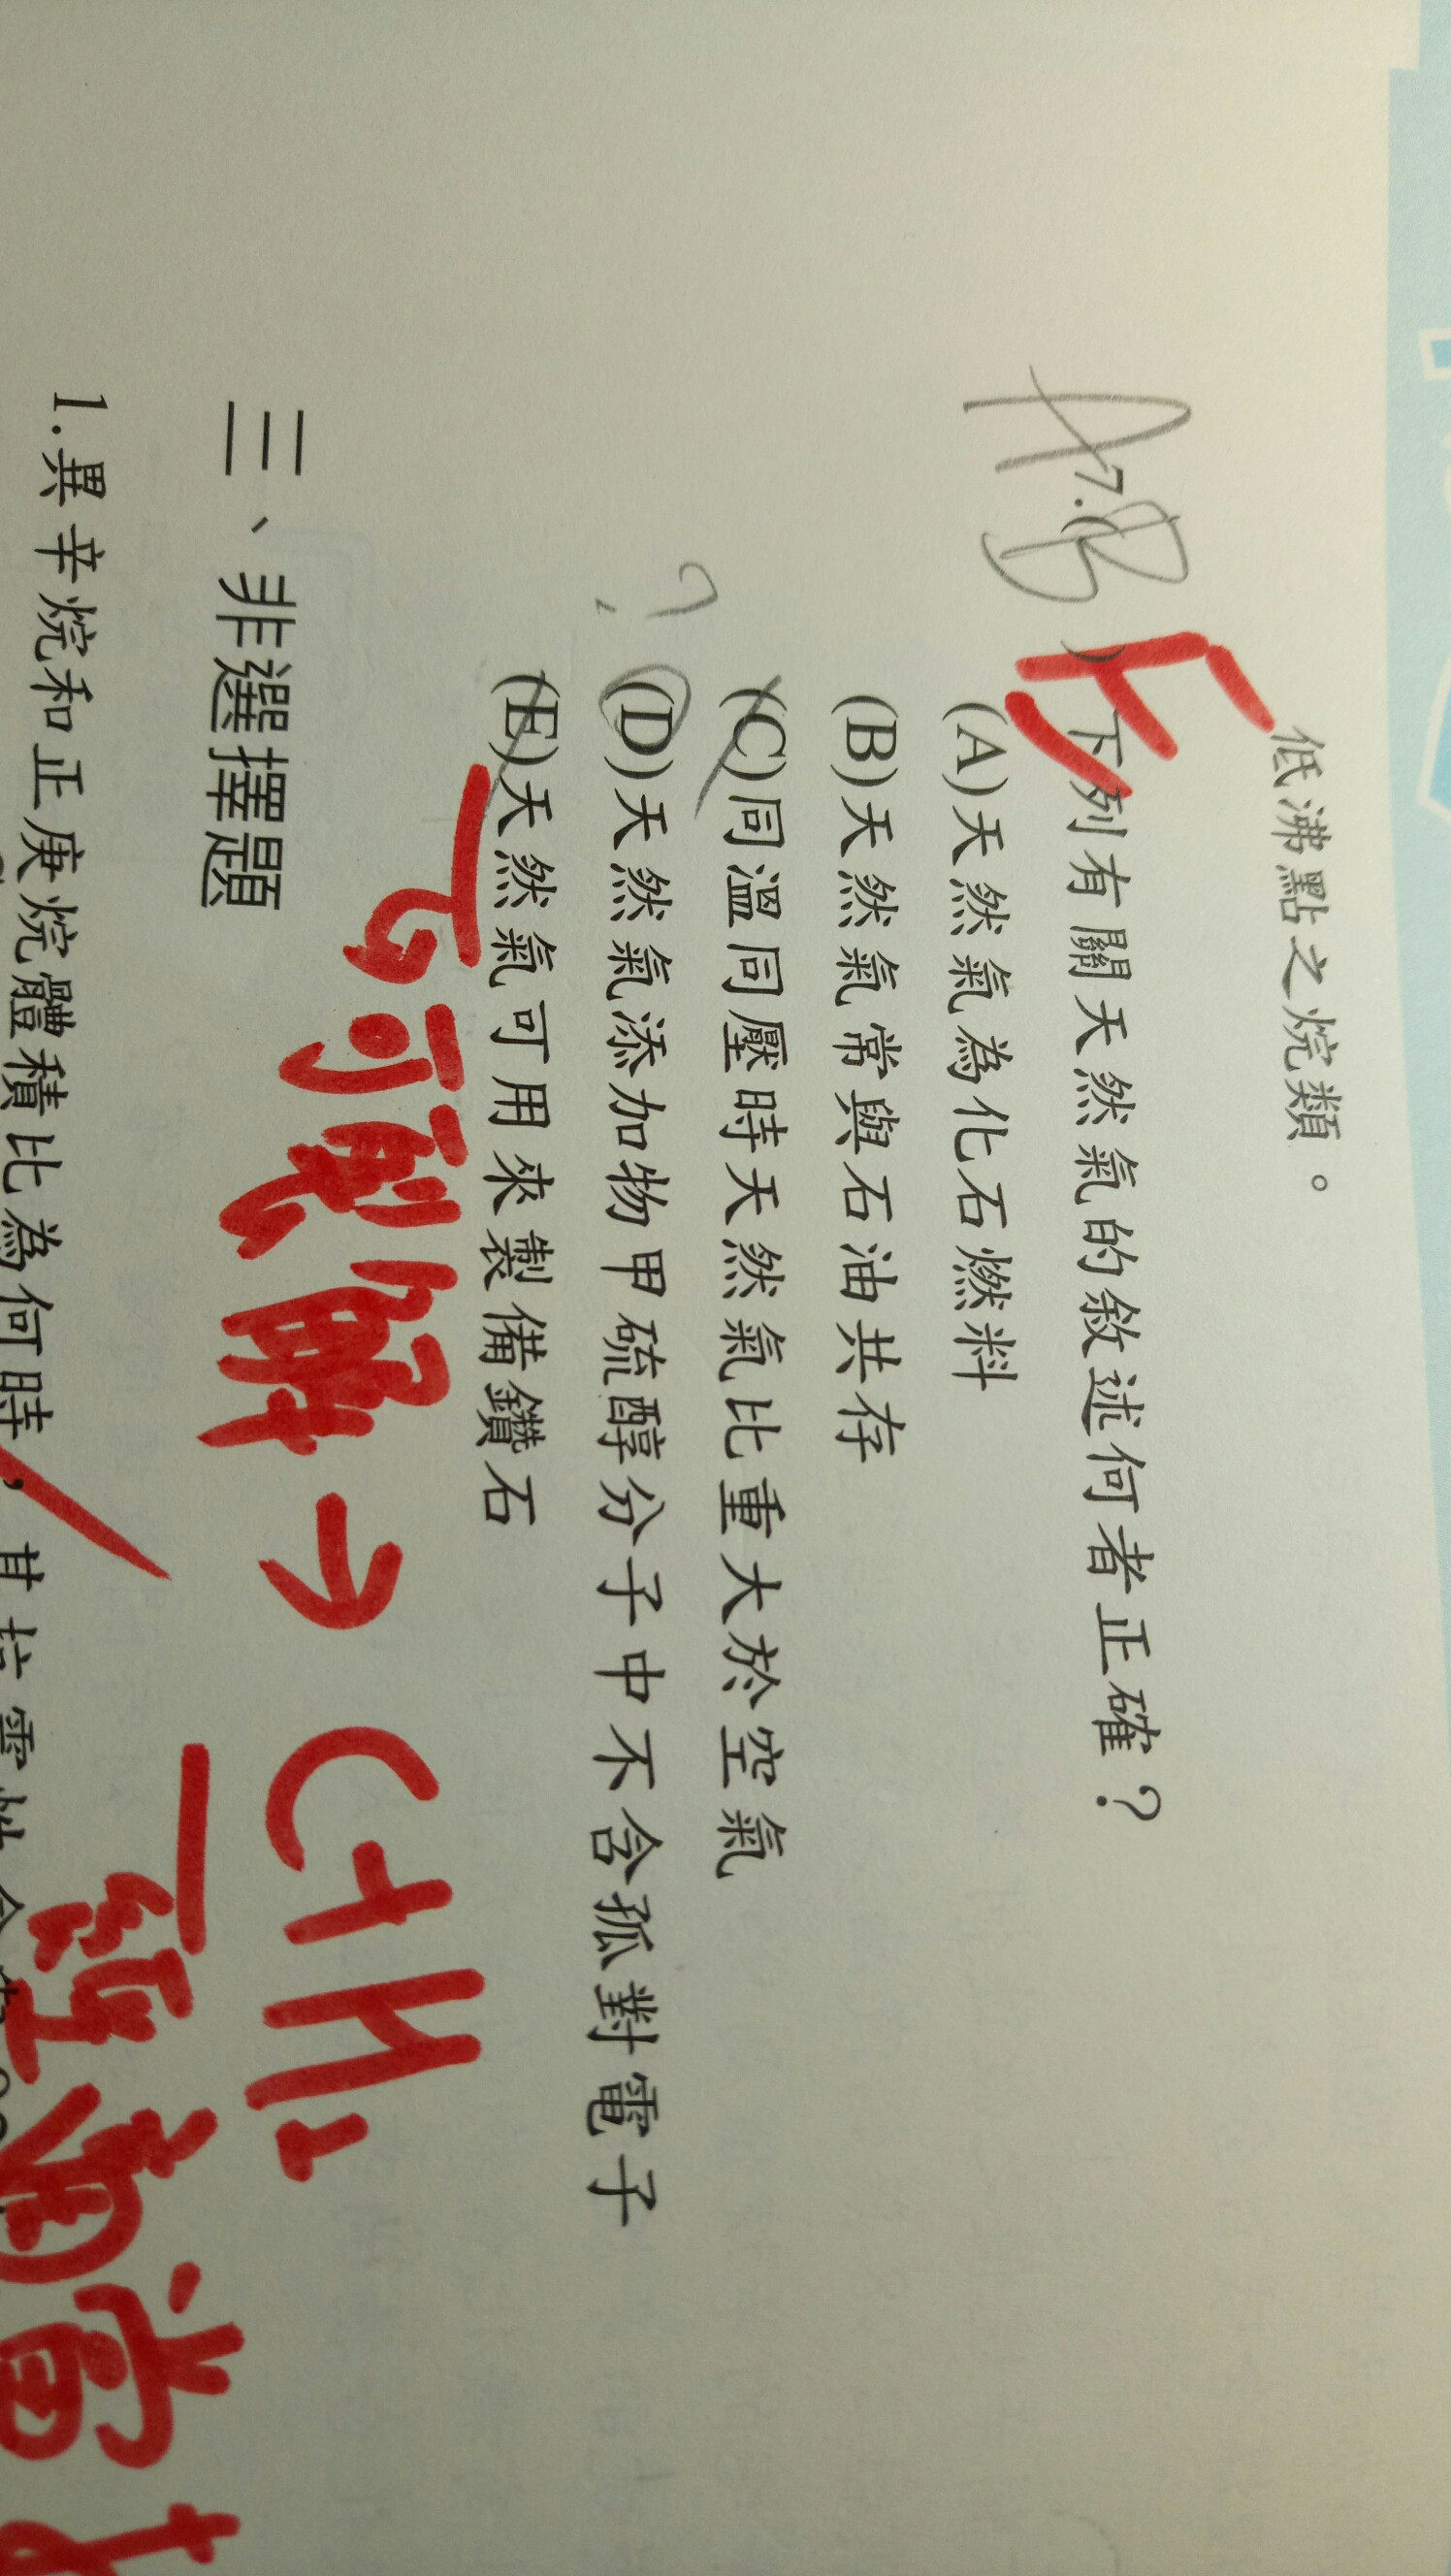 低沸點之烷類。
AB E
7.( )下列有關天然氣的敘述何者正確?
(A)天然氣為化石燃料
(B)天然氣常與石油共存
(C)同溫同壓時天然氣比重大於空氣
? (D)天然氣添加物甲硫醇分子中不含孤對電子
(E)天然氣可用來製備鑽石
可裂解→C+H₂
三、非選擇題
1.異辛烷和正庚烷體積比為何時,其抗震性